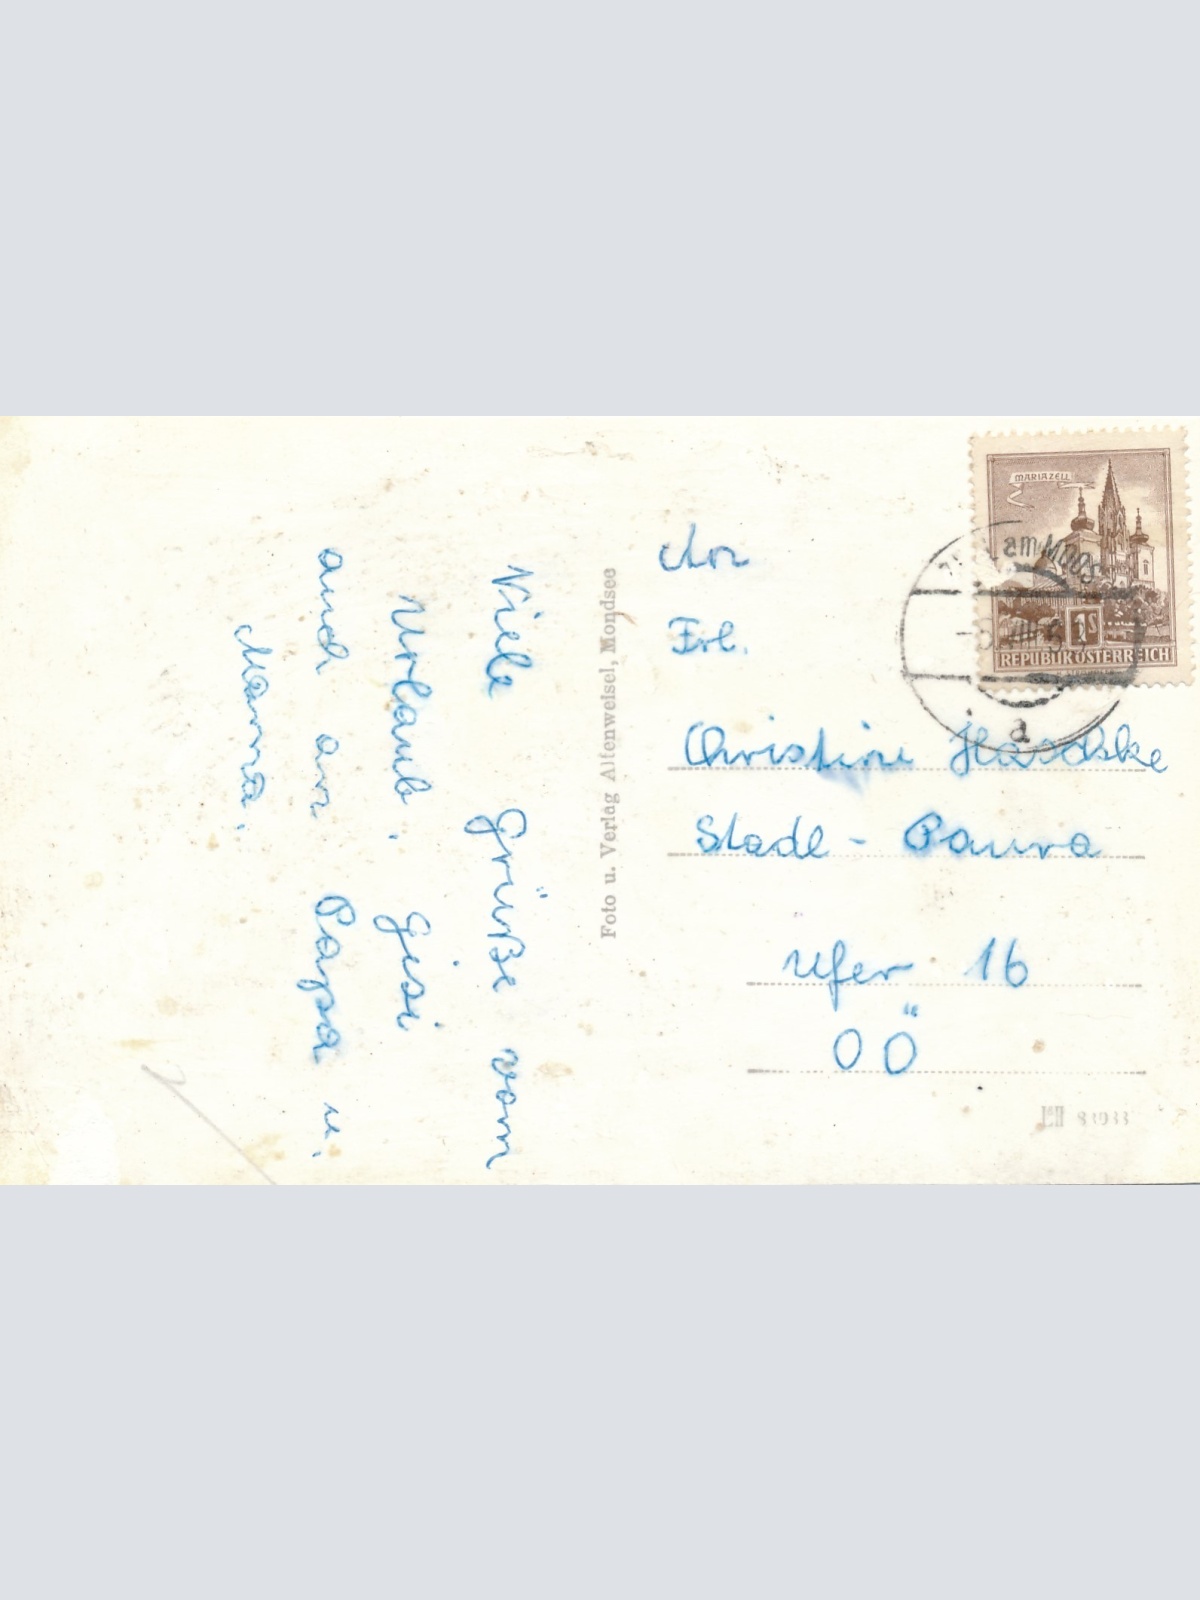 Viele Grüße vom
Urlaub. Gisi
auch an Papa u.
Mama.
Foto u. Verlag Altenweisel, Mondsee
An
Frl.
Christine
Stadl-Paura
Ufer 16
OÖ
MARIAZELL
1S
REPUBLIK ÖSTERREICH
am Moos
a
83933